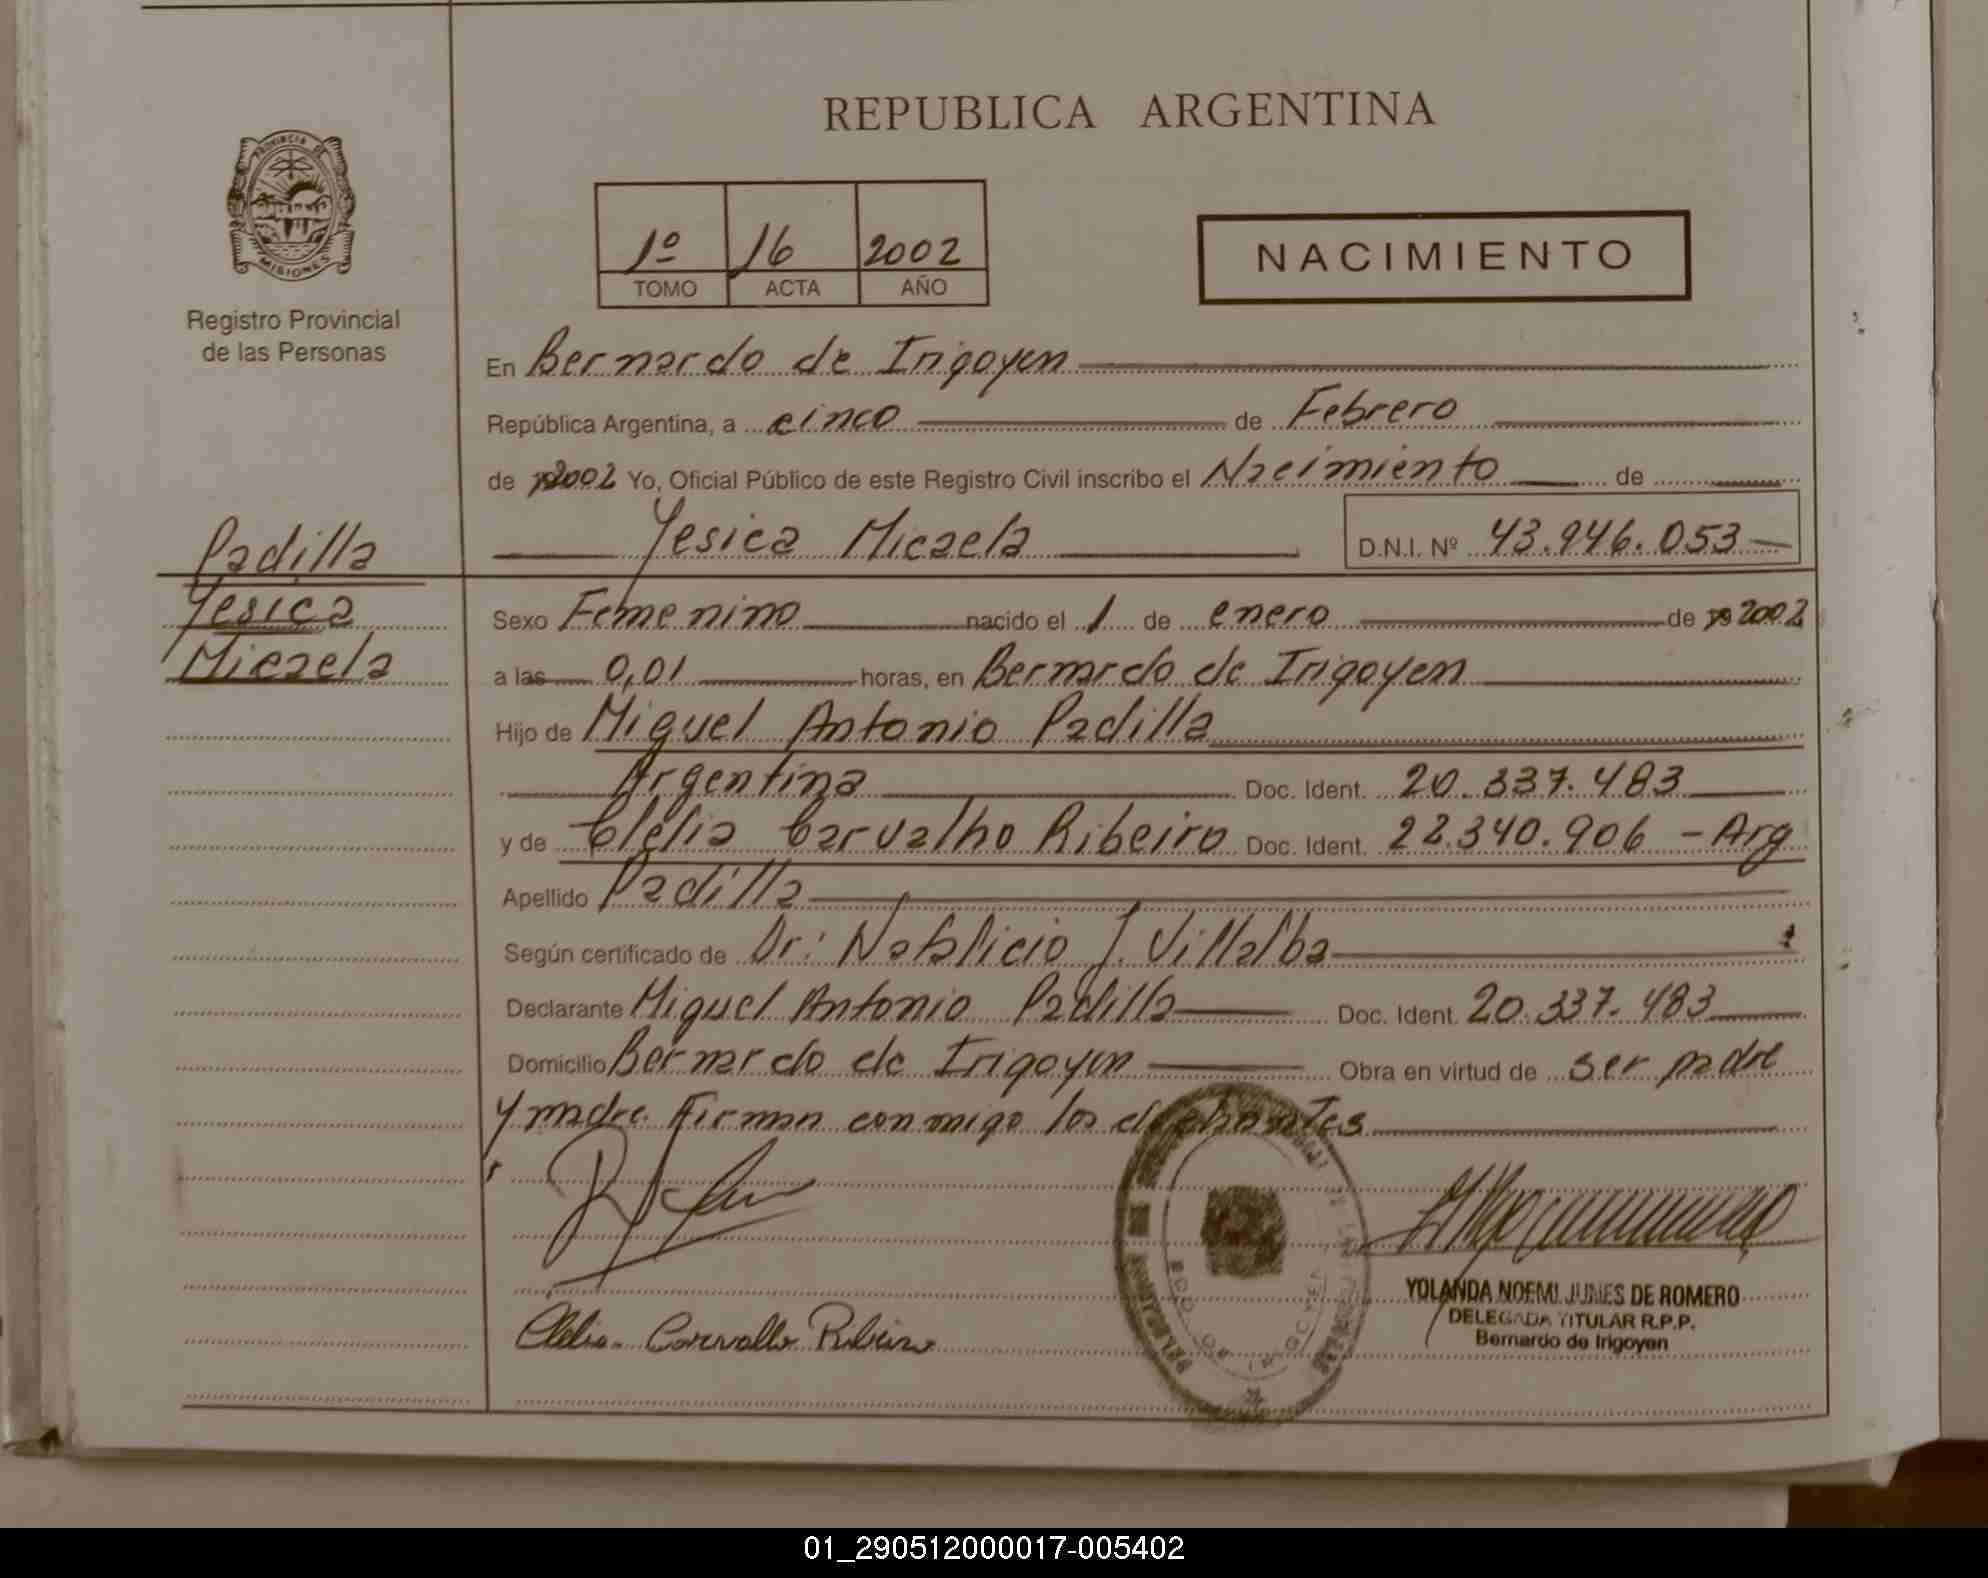 REPUBLICA ARGENTINA
PROVINCIA DE
MISIONES
Registro Provincial
de las Personas
1º 16 2002
TOMO ACTA AÑO
NACIMIENTO
En Bernardo de Irigoyen
República Argentina, a cinco de Febrero
de 2002 Yo, Oficial Público de este Registro Civil inscribo el Nacimiento de
Yesica Micaela D.N.I. Nº 43.946.053
Padilla
Yesica
Micaela
Sexo Femenino nacido el 1 de enero de 2002
a las 0,01 horas, en Bernardo de Irigoyen
Hijo de Miguel Antonio Padilla
Argentina Doc. Ident. 20.337.483
y de Clelia Carvalho Ribeiro Doc. Ident. 22.340.906 - Arg
Apellido Padilla
Según certificado de Dr: Natalicio J. Villalba
Declarante Miguel Antonio Padilla Doc. Ident. 20.337.483
Domicilio Bernardo de Irigoyen Obra en virtud de ser padre
y madre. Firman conmigo los
Clelia Carvalho Ribeiro
YOLANDA NOEMI JUNES DE ROMERO
DELEGADA TITULAR R.P.P.
Bernardo de Irigoyen
01_290512000017-005402